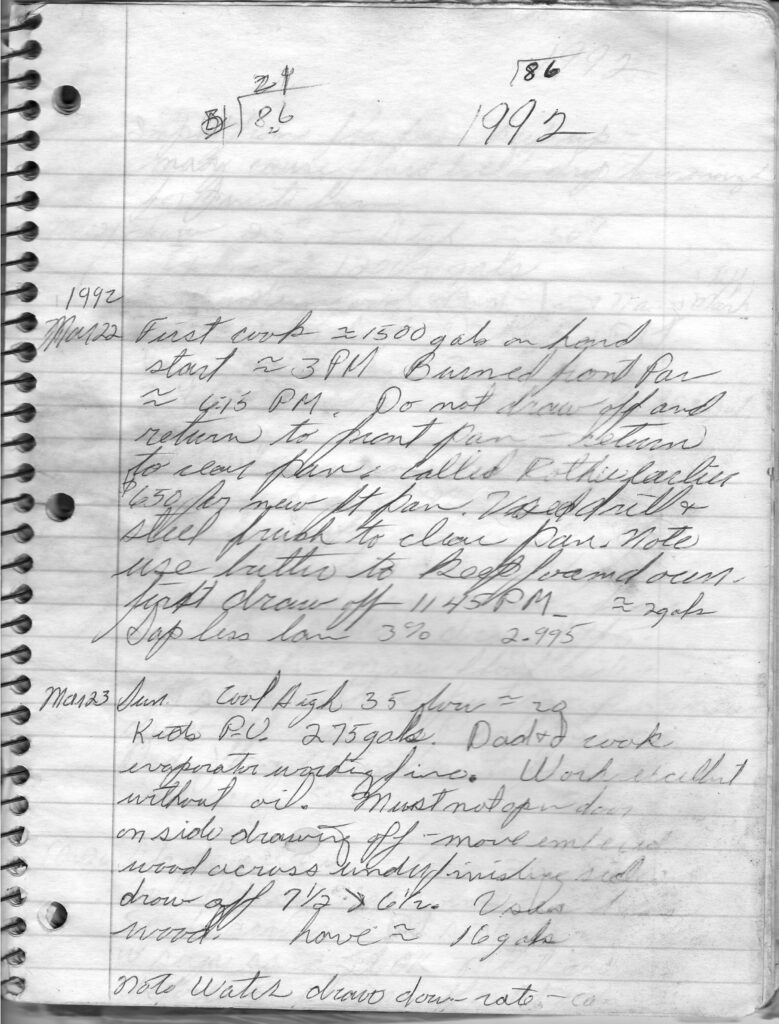 24
86
86
1992
1992
Mar 22 First cook ≈ 1500 gals on hand
start ≈ 3 PM Burned front Pan
≈ PM. Do not draw off and
return to front pan - return
to rear pan. called earlier
$650 for new ft pan. Used drill &
steel brush to clean pan. Note
use butter to keep foam down.
first draw off 11 45 PM - ≈ 2 gals
Sap less than 3% 2.995
Mar 23 Sun. Cool High 35 flow ≈
Kids P.U. 275 gals. Dad & I cook
evaporator working fine. Work excellent
without oil. Must not open door
on side drawing off - move
wood across under finishing side
draw off 7 1/2 > 6 1/2. Uses
wood. have ≈ 16 gals
Note Watch draw down rate -